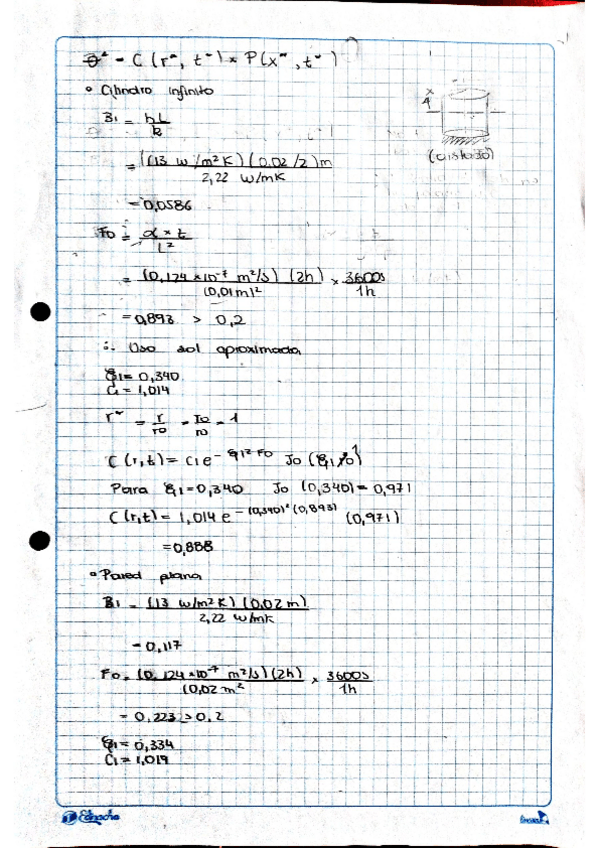 θ* = C(r*, t*) × P(x*, t*)
• Cilindro infinito
x
4
(aislado)
Bi = hL / k
= (13 w/m²K)(0.02/2)m / 2,22 w/mK
= 0,0586
Fo = α × t / L²
= (0,124×10⁻⁷ m²/s)(2h) / (0,01m)² × 3600s / 1h
= 0,893 > 0,2
∴ Uso sol aproximada
ξ1 = 0,340
C1 = 1,014
r* = r/r0 = r0/r0 = 1
C(r,t) = C1 e^-ξ1² Fo J0(ξ1 r0) 1
Para ξ1 = 0,340 J0(0,340) = 0,971
C(r,t) = 1,014 e^-(0,340)²(0,893) (0,971)
= 0,888
• Pared plana
Bi = (13 w/m²K)(0,02m) / 2,22 w/mk
= 0,117
Fo = (0,124×10⁻⁷ m²/s)(2h) / (0,02m² × 3600s / 1h
= 0,223 > 0,2
ξ1 = 0,334
C1 = 1,019